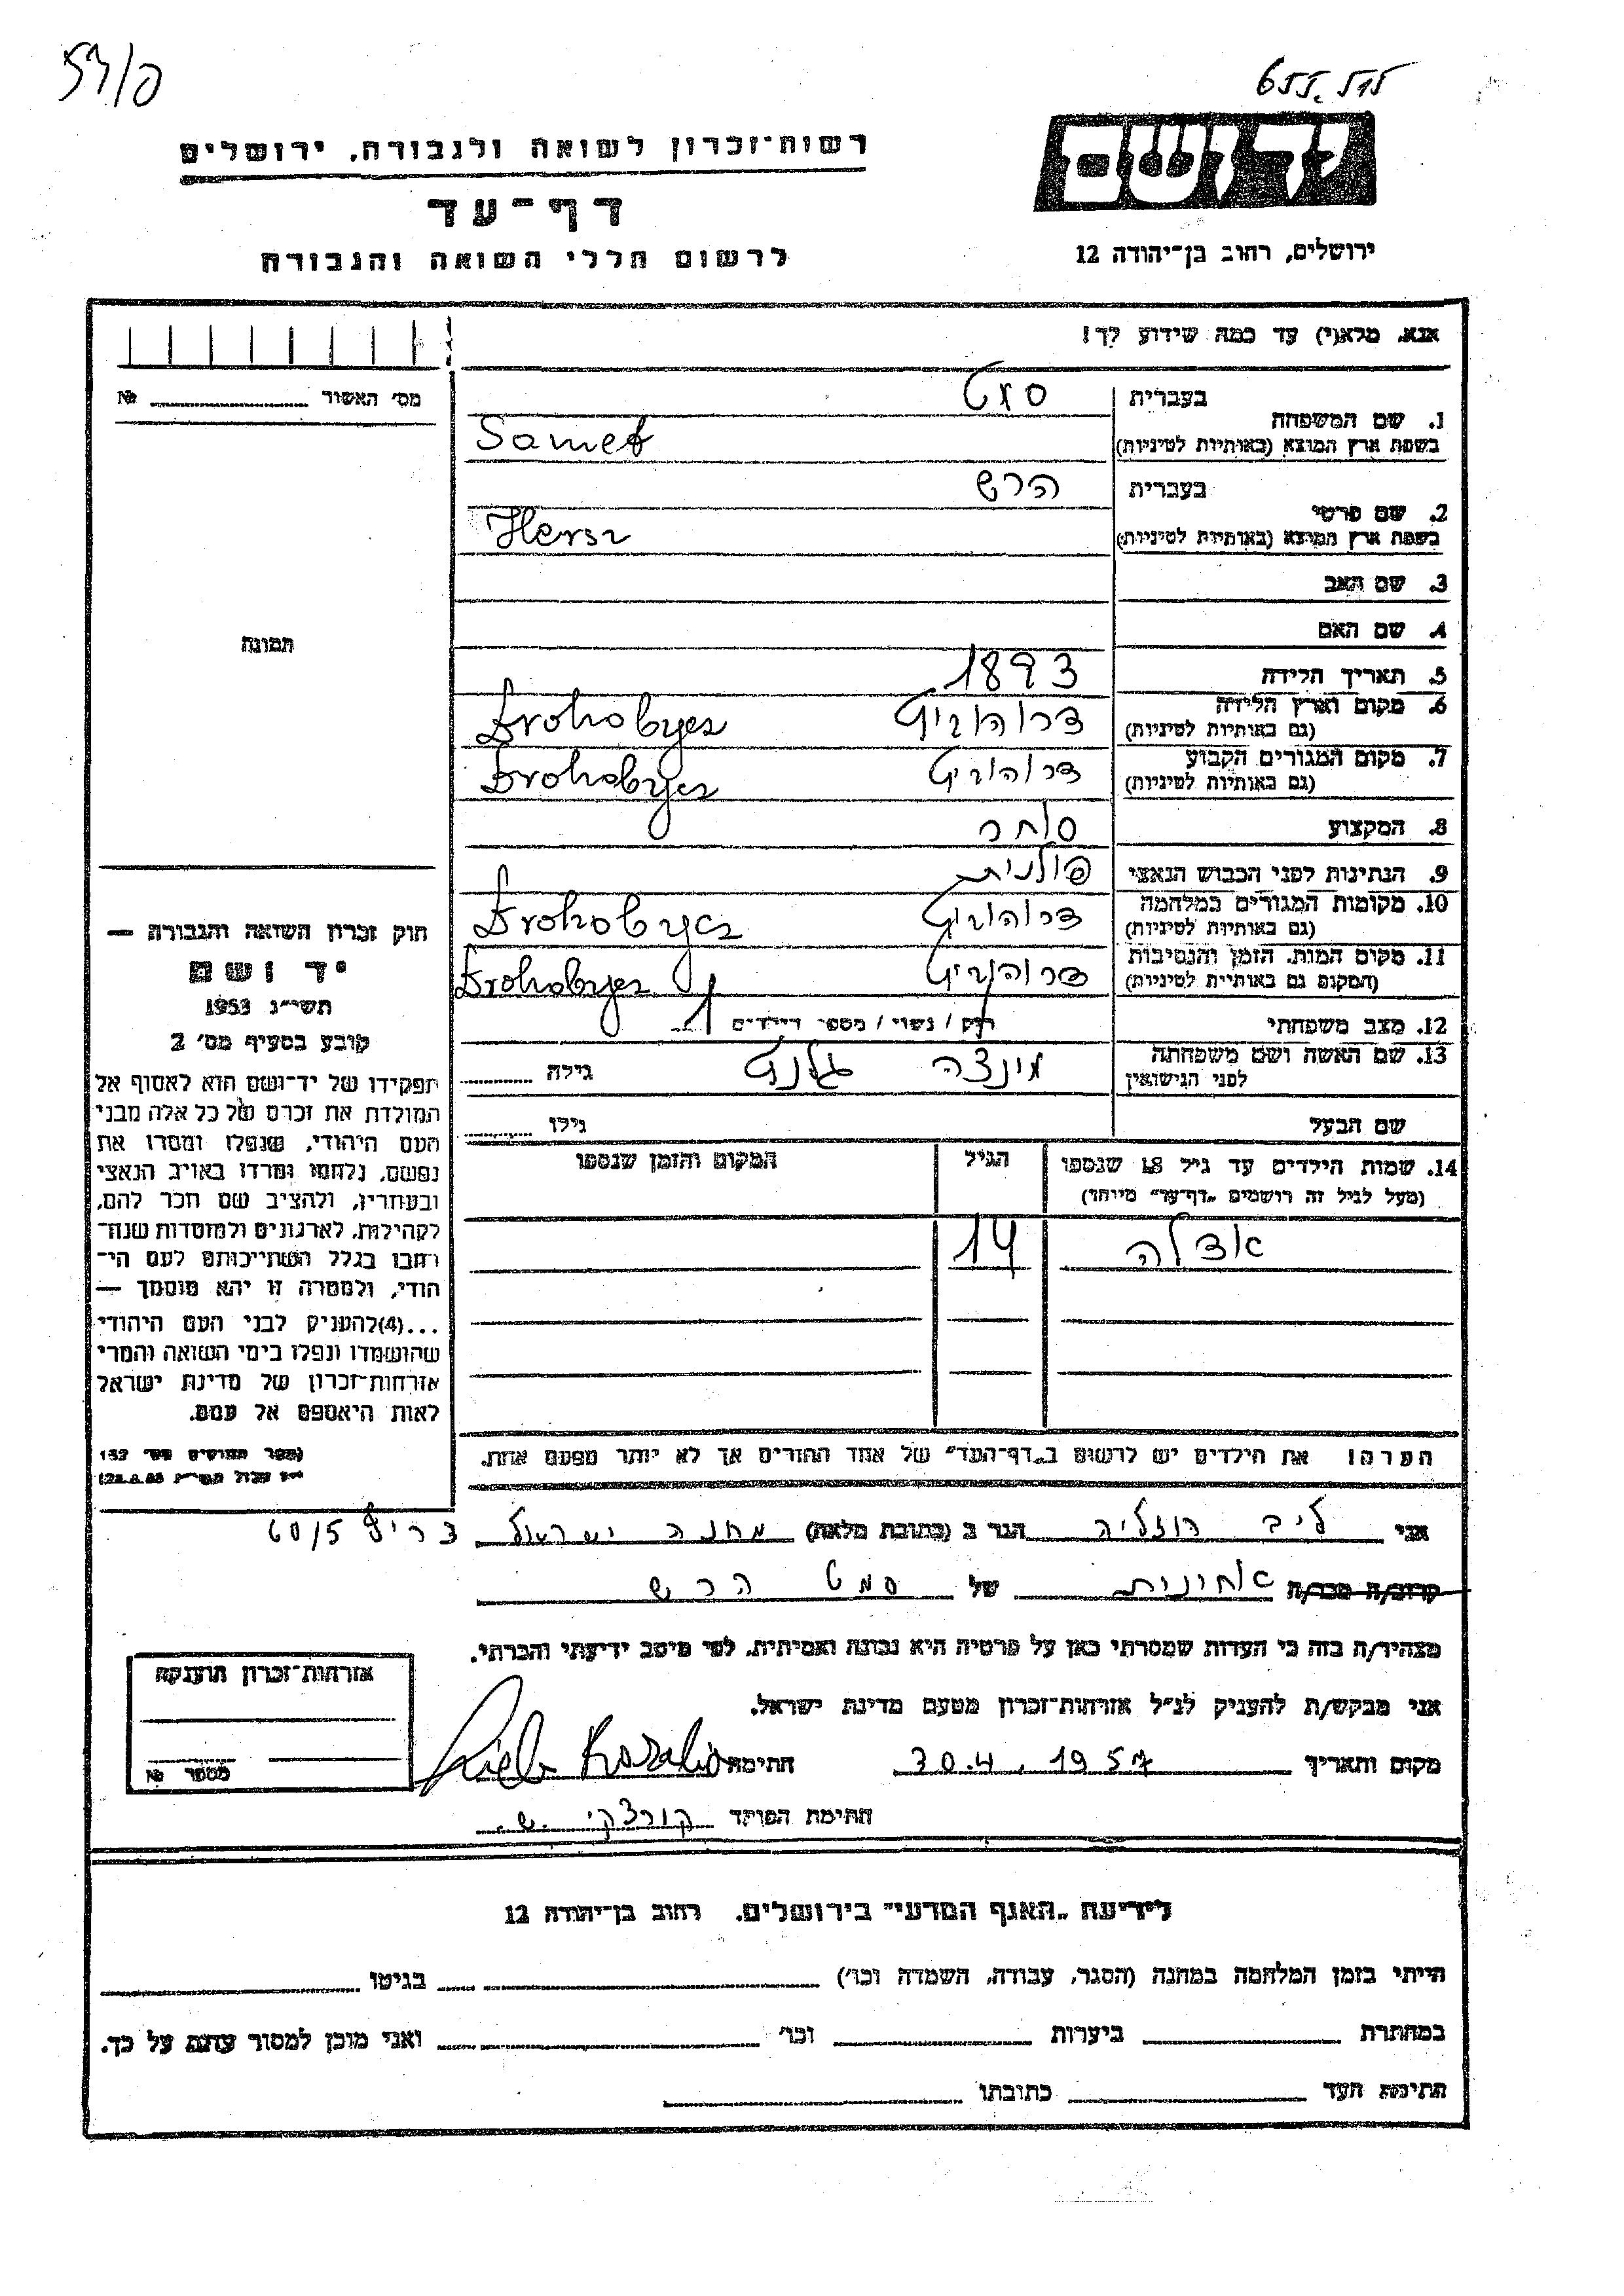 655.515
יד ושם
ירושלים, רחוב בן־יהודה 12
רשות־זכרון לשואה ולגבורה, ירושלים
דף־עד
לרשום חללי השואה והגבורה
אנא, מלא(י) עד כמה שידוע לך!
1. שם המשפחה
בעברית סמט
בשפת ארץ המוצא (באותיות לטיניות) Samet
2. שם פרטי
בעברית הרש
בשפת ארץ המוצא (באותיות לטיניות) Hersz
3. שם האב
4. שם האם
5. תאריך הלידה 1893
6. מקום וארץ הלידה דרוהוביט Drohobycz
(גם באותיות לטיניות)
7. מקום המגורים הקבוע דרוהוביט Drohobycz
(גם באותיות לטיניות)
8. המקצוע סוחר
9. הנתינות לפני הכבוש הנאצי פולנית
10. מקומות המגורים במלחמה דרוהוביט Drohobycz
(גם באותיות לטיניות)
11. מקום המות, הזמן והנסיבות דרוהוביט Drohobycz
(המקום גם באותיות לטיניות)
12. מצב משפחתי רוק / נשוי / מספר הילדים 1
13. שם האשה ושם משפחתה מינצה גלנט גילה
לפני הנישואין
שם הבעל גילו
14. שמות הילדים עד גיל 18 שנספו הגיל המקום והזמן שנספו
(מעל לגיל זה רושמים „דף־עד" מיוחד)
אדלה 14
הערה! את הילדים יש לרשום ב„דף־העד" של אחד ההורים אך לא יותר מפעם אחת.
מס׳ האשור №
תמונה
חוק זכרון השואה והגבורה —
יד ושם
תשי״ג 1953
קובע בסעיף מס׳ 2
תפקידו של יד־ושם הוא לאסוף אל
המולדת את זכרם של כל אלה מבני
העם היהודי, שנפלו ומסרו את
נפשם, נלחמו ומרדו באויב הנאצי
ובעוזריו, ולהציב שם וזכר להם,
לקהילות, לארגונים ולמוסדות שנח־
רבו בגלל השתייכותם לעם הי־
הודי, ולמטרה זו יהא מוסמך —
...(4)להעניק לבני העם היהודי
שהושמדו ונפלו בימי השואה והמרי
אזרחות־זכרון של מדינת ישראל
לאות היאספם אל עמם.
(ספר החוקים מס׳ 132
אני ליב רוזליה הגר ב (כתובת מלאה) מחנה ישראל צריף 60/5
קרוב/ה מכר/ה אחינית של סמט הרש
מצהיר/ה בזה כי העדות שמסרתי כאן על פרטיה היא נכונה ואמיתית, לפי מיטב ידיעתי והכרתי.
אני מבקש/ת להעניק לנ״ל אזרחות־זכרון מטעם מדינת ישראל.
מקום ותאריך 30.4.1957 חתימה Lieb Rozalia
חתימת הפוקד קורצקי ש.
אזרחות־זכרון הוענקה
מספר №
לידיעת „האגף המדעי" בירושלים, רחוב בן־יהודה 12
הייתי בזמן המלחמה במחנה (הסגר, עבודה, השמדה וכו׳) בגיטו
במחתרת ביערות וכו׳ ואני מוכן למסור עדות על כך.
חתימת העד כתובתו